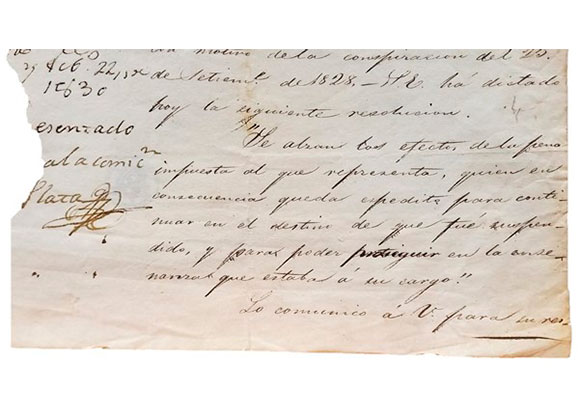 motivo de la conspiracion del 25.
de Setiemᵉ. de 1828.–S.E. há dictado
hoy la siguiente resolucion.
"Se alzan los efectos de la pena
impuesta al que representa, quien en
consecuencia queda espedito para conti-
nuar en el destino de que fué suspen-
dido, y para poder proseguir en la ense-
nanza que estaba á su cargo."
Lo comunico á V. para su res-
22,
1830
esentado
a la comicⁿ
Plata